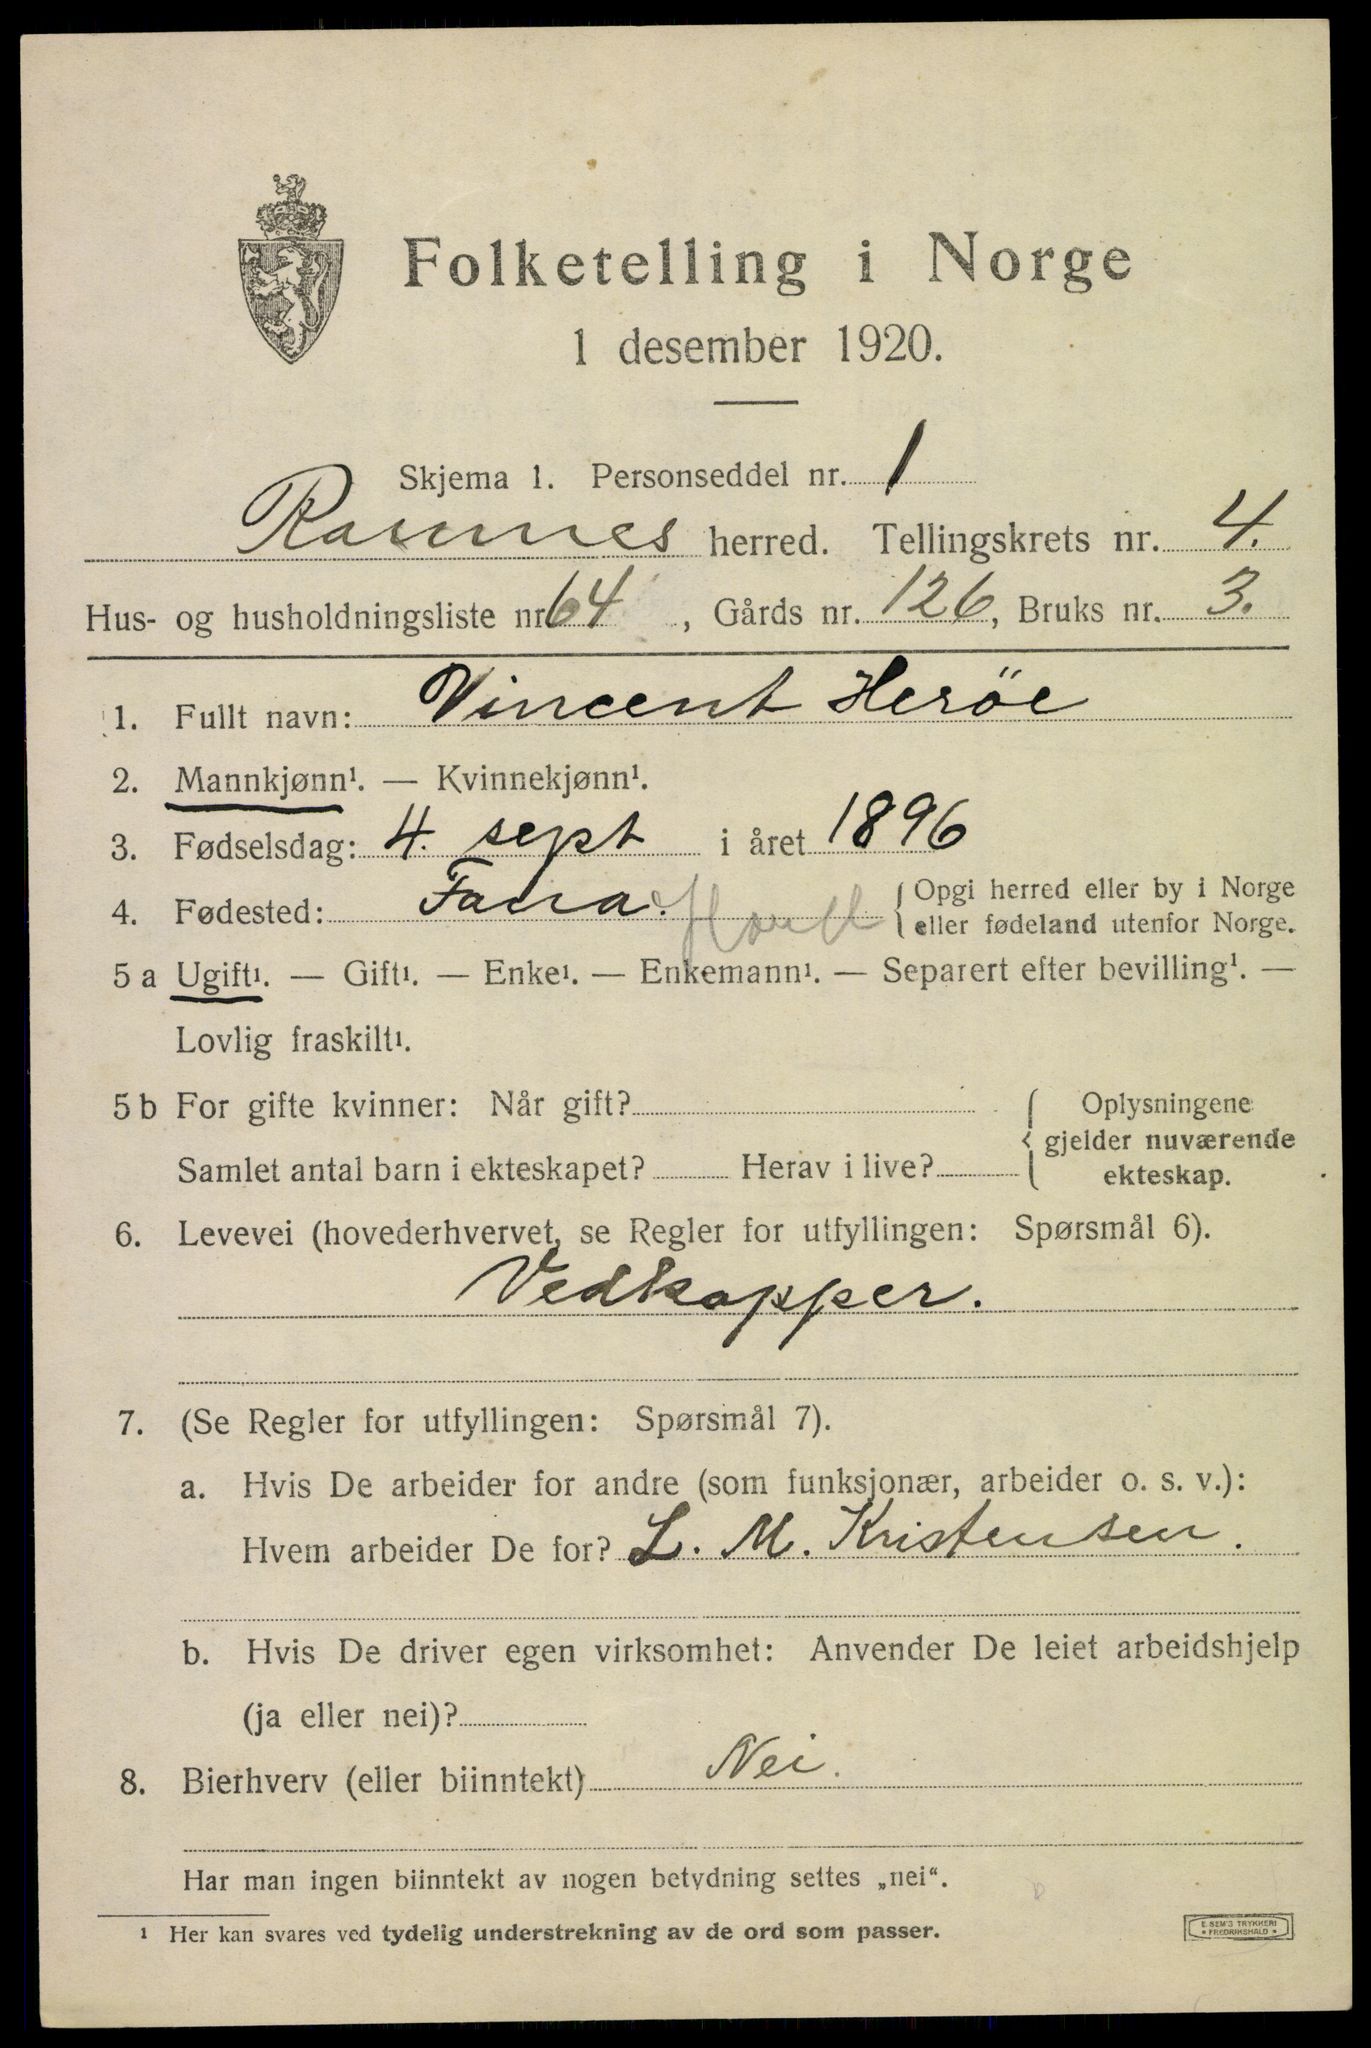 Folketelling i Norge
1 desember 1920.
Skjema 1. Personseddel nr. 1
Ramnes herred. Tellingskrets nr. 4.
Hus- og husholdningsliste nr. 64, Gårds nr. 126, Bruks nr. 3.
1. Fullt navn: Vincent Heröe
2. Mannkjønn¹. — Kvinnekjønn¹.
3. Fødselsdag: 4. sept i året 1896
4. Fødested: Fana. Hordl { Opgi herred eller by i Norge
eller fødeland utenfor Norge.
5 a Ugift¹. — Gift¹. — Enke¹. — Enkemann¹. — Separert efter bevilling¹. —
Lovlig fraskilt¹.
5 b For gifte kvinner: Når gift?
Samlet antal barn i ekteskapet? Herav i live?
{ Oplysningene
gjelder nuværende
ekteskap.
6. Levevei (hovederhvervet, se Regler for utfyllingen: Spørsmål 6).
Vedkapper.
7. (Se Regler for utfyllingen: Spørsmål 7).
a. Hvis De arbeider for andre (som funksjonær, arbeider o. s. v.):
Hvem arbeider De for? L. M. Kristensen.
b. Hvis De driver egen virksomhet: Anvender De leiet arbeidshjelp
(ja eller nei)?
8. Bierhverv (eller biinntekt) Nei.
Har man ingen biinntekt av nogen betydning settes „nei“.
¹ Her kan svares ved tydelig understrekning av de ord som passer.
E. SEM'S TRYKKERI
* FREDRIKSHALD *